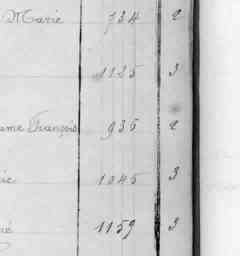 Marie 734 2
1125 3
ume François 935 2
rie 1045 3
né 1159 3